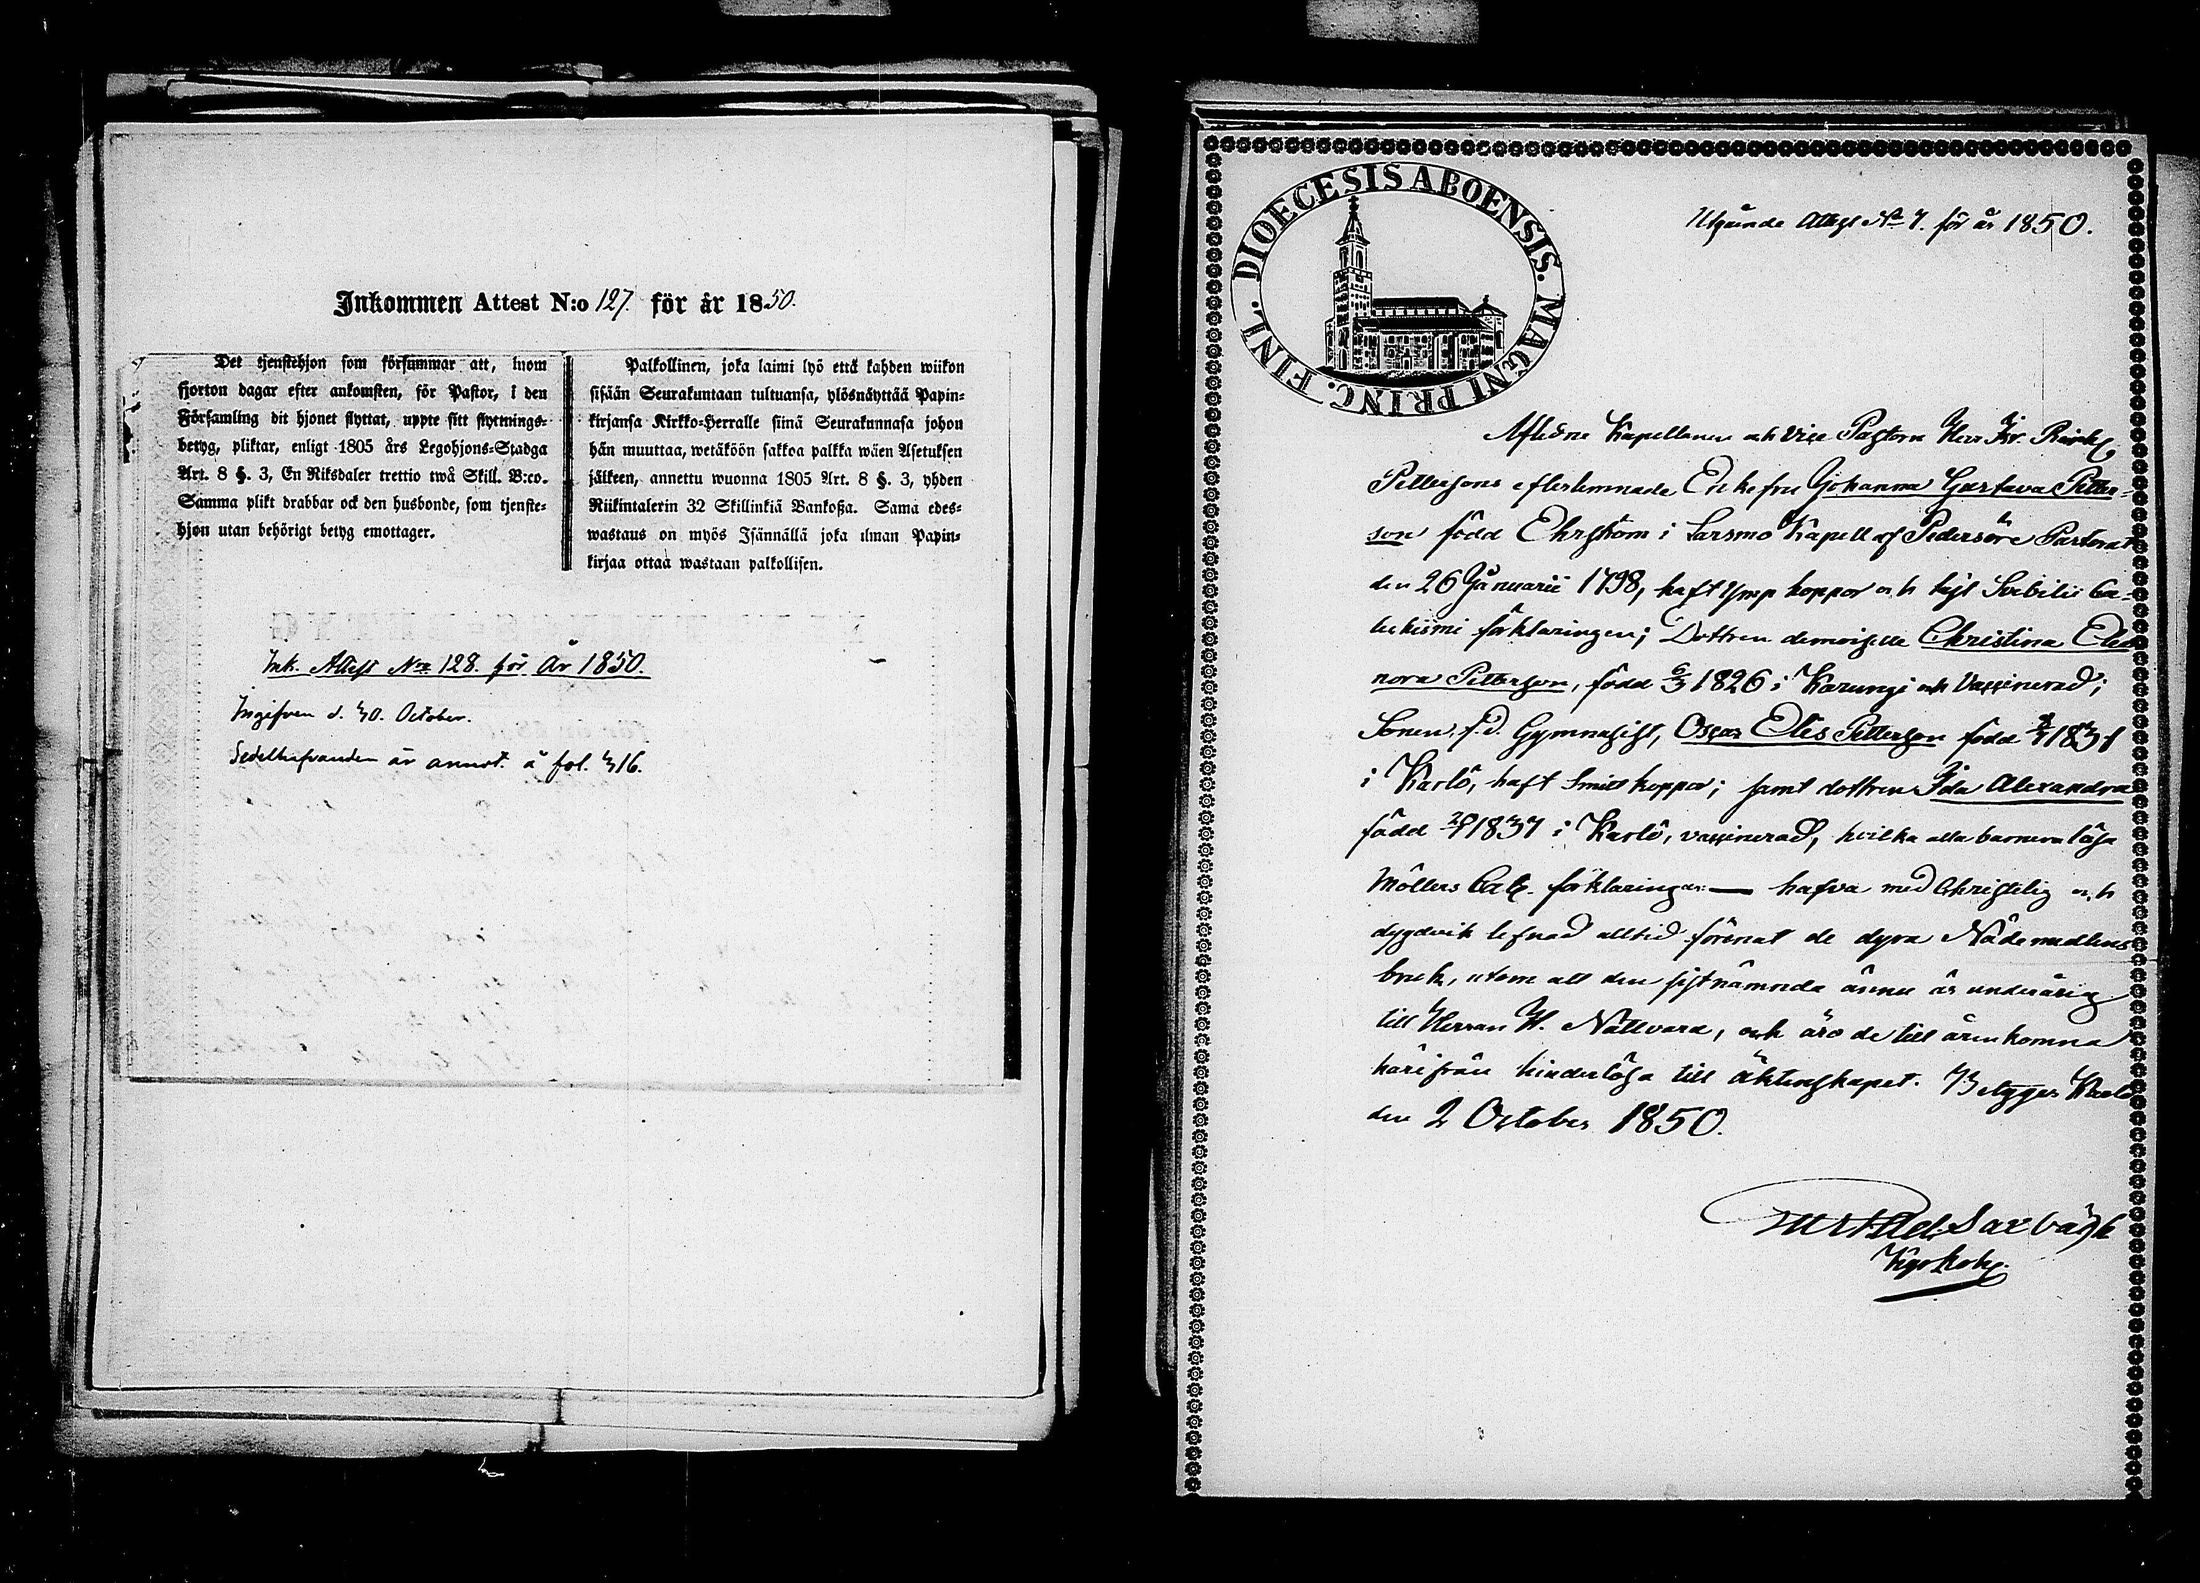 Inkommen Attest N:o 127. för år 1850.
Det tjenstehjon som försummar att, inom
fjorton dagar efter ankomsten, för Pastor, i den
Församling dit hjonet flyttat, uppte sitt flyttnings-
betyg, pliktar, enligt 1805 års Legohjons-Stadga
Art. 8 §. 3, En Riksdaler trettio twå Skill. B:co.
Samma plikt drabbar ock den husbonde, som tjenste-
hjon utan behörigt betyg emottager.
Palkollinen, joka laimi lyö että kahden wiikon
sisään Seurakuntaan tultuansa, ylösnäyttää Papin-
kirjansa Kirkko-Herralle siinä Seurakunnasa johon
hän muuttaa, wetäköön sakkoa palkka wäen Asetuksen
jälkeen, annettu wuonna 1805 Art. 8 §. 3, yhden
Riikintalerin 32 Skillinkiä Bankoßa. Sama edes-
wastaus on myös Isännällä joka ilman Papin-
kirjaa ottaa wastaan palkollisen.
Ink. Attest No 128. för År 1850.
Ingifven d. 30. October.
Sedelhafvanden är annot. å fol. 316.
DIOECESIS ABOENSIS. MAGNI PRINC. FINL.
Utgående Attest No 7. för år 1850.
Aflidne Kapellanen och Vice Pastorn Herr Kr.
Pettersons efterlemnade Enkefru Johanna Gustava Petter-
son född Ehrström i Larsmo Kapell af Pedersöre Pastorat
den 26 Januarii 1798, haft koppor och läst Svebilii Ca-
tekismi förklaringen; Dottren demoiselle Christina Eleo
nora Petterson, född 6/3 1826 i Karungi och Vaccinerad;
Sonen, f.d. Gymnasist, Oscar Elis Petterson född 1831
i Karlö, haft Smittkoppor; samt dottren Ida Alexandra
född 1837 i Karlö, vaccinerad, hvilka alla barnen läsa
Möllers Catk. förklaringar — hafva med Christelig och
dygdevik lefnad alltid förenat de dyra Nådemedlens
bruk, utom att den sistnämnda ännu är underårig
till Herran H. Nattvard, och äro de till
härifrån hinderlösa till äktenskapet. Betyges Karlö
den 2 October 1850.
Kyrkoh.